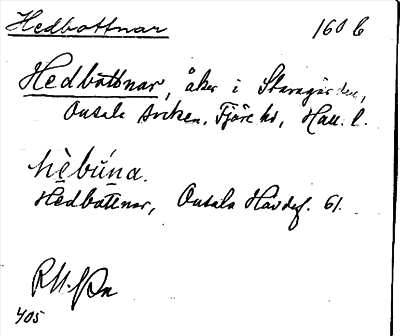 Hedbottnar 160 b
Hedbottnar, åker i Stavagården,
Onsala socken, Fjäre hd, Hall. l.
hèbúna.
Hedbottnar, Onsala Håvdef. 61.
405